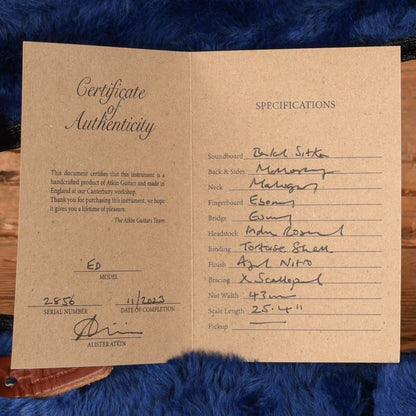 Certificate
of
Authenticity
This document certifies that this instrument is a
handcrafted product of Atkin Guitars and made in
England at our Canterbury workshop.
Thank you for purchasing this instrument, we hope
it gives you a lifetime of pleasure.
- The Atkin Guitars Team
ED
MODEL
2856
SERIAL NUMBER
11/2023
DATE OF COMPLETION
ALISTER ATKIN
SPECIFICATIONS
Soundboard Baked Sitka
Back & Sides Mahogany
Neck Mahogany
Fingerboard Ebony
Bridge Ebony
Headstock Indian Rosewood
Binding Tortoise Shell
Finish Aged Nitro
Bracing X Scalloped
Nut Width 43mm
Scale Length 25.4"
Pickup —